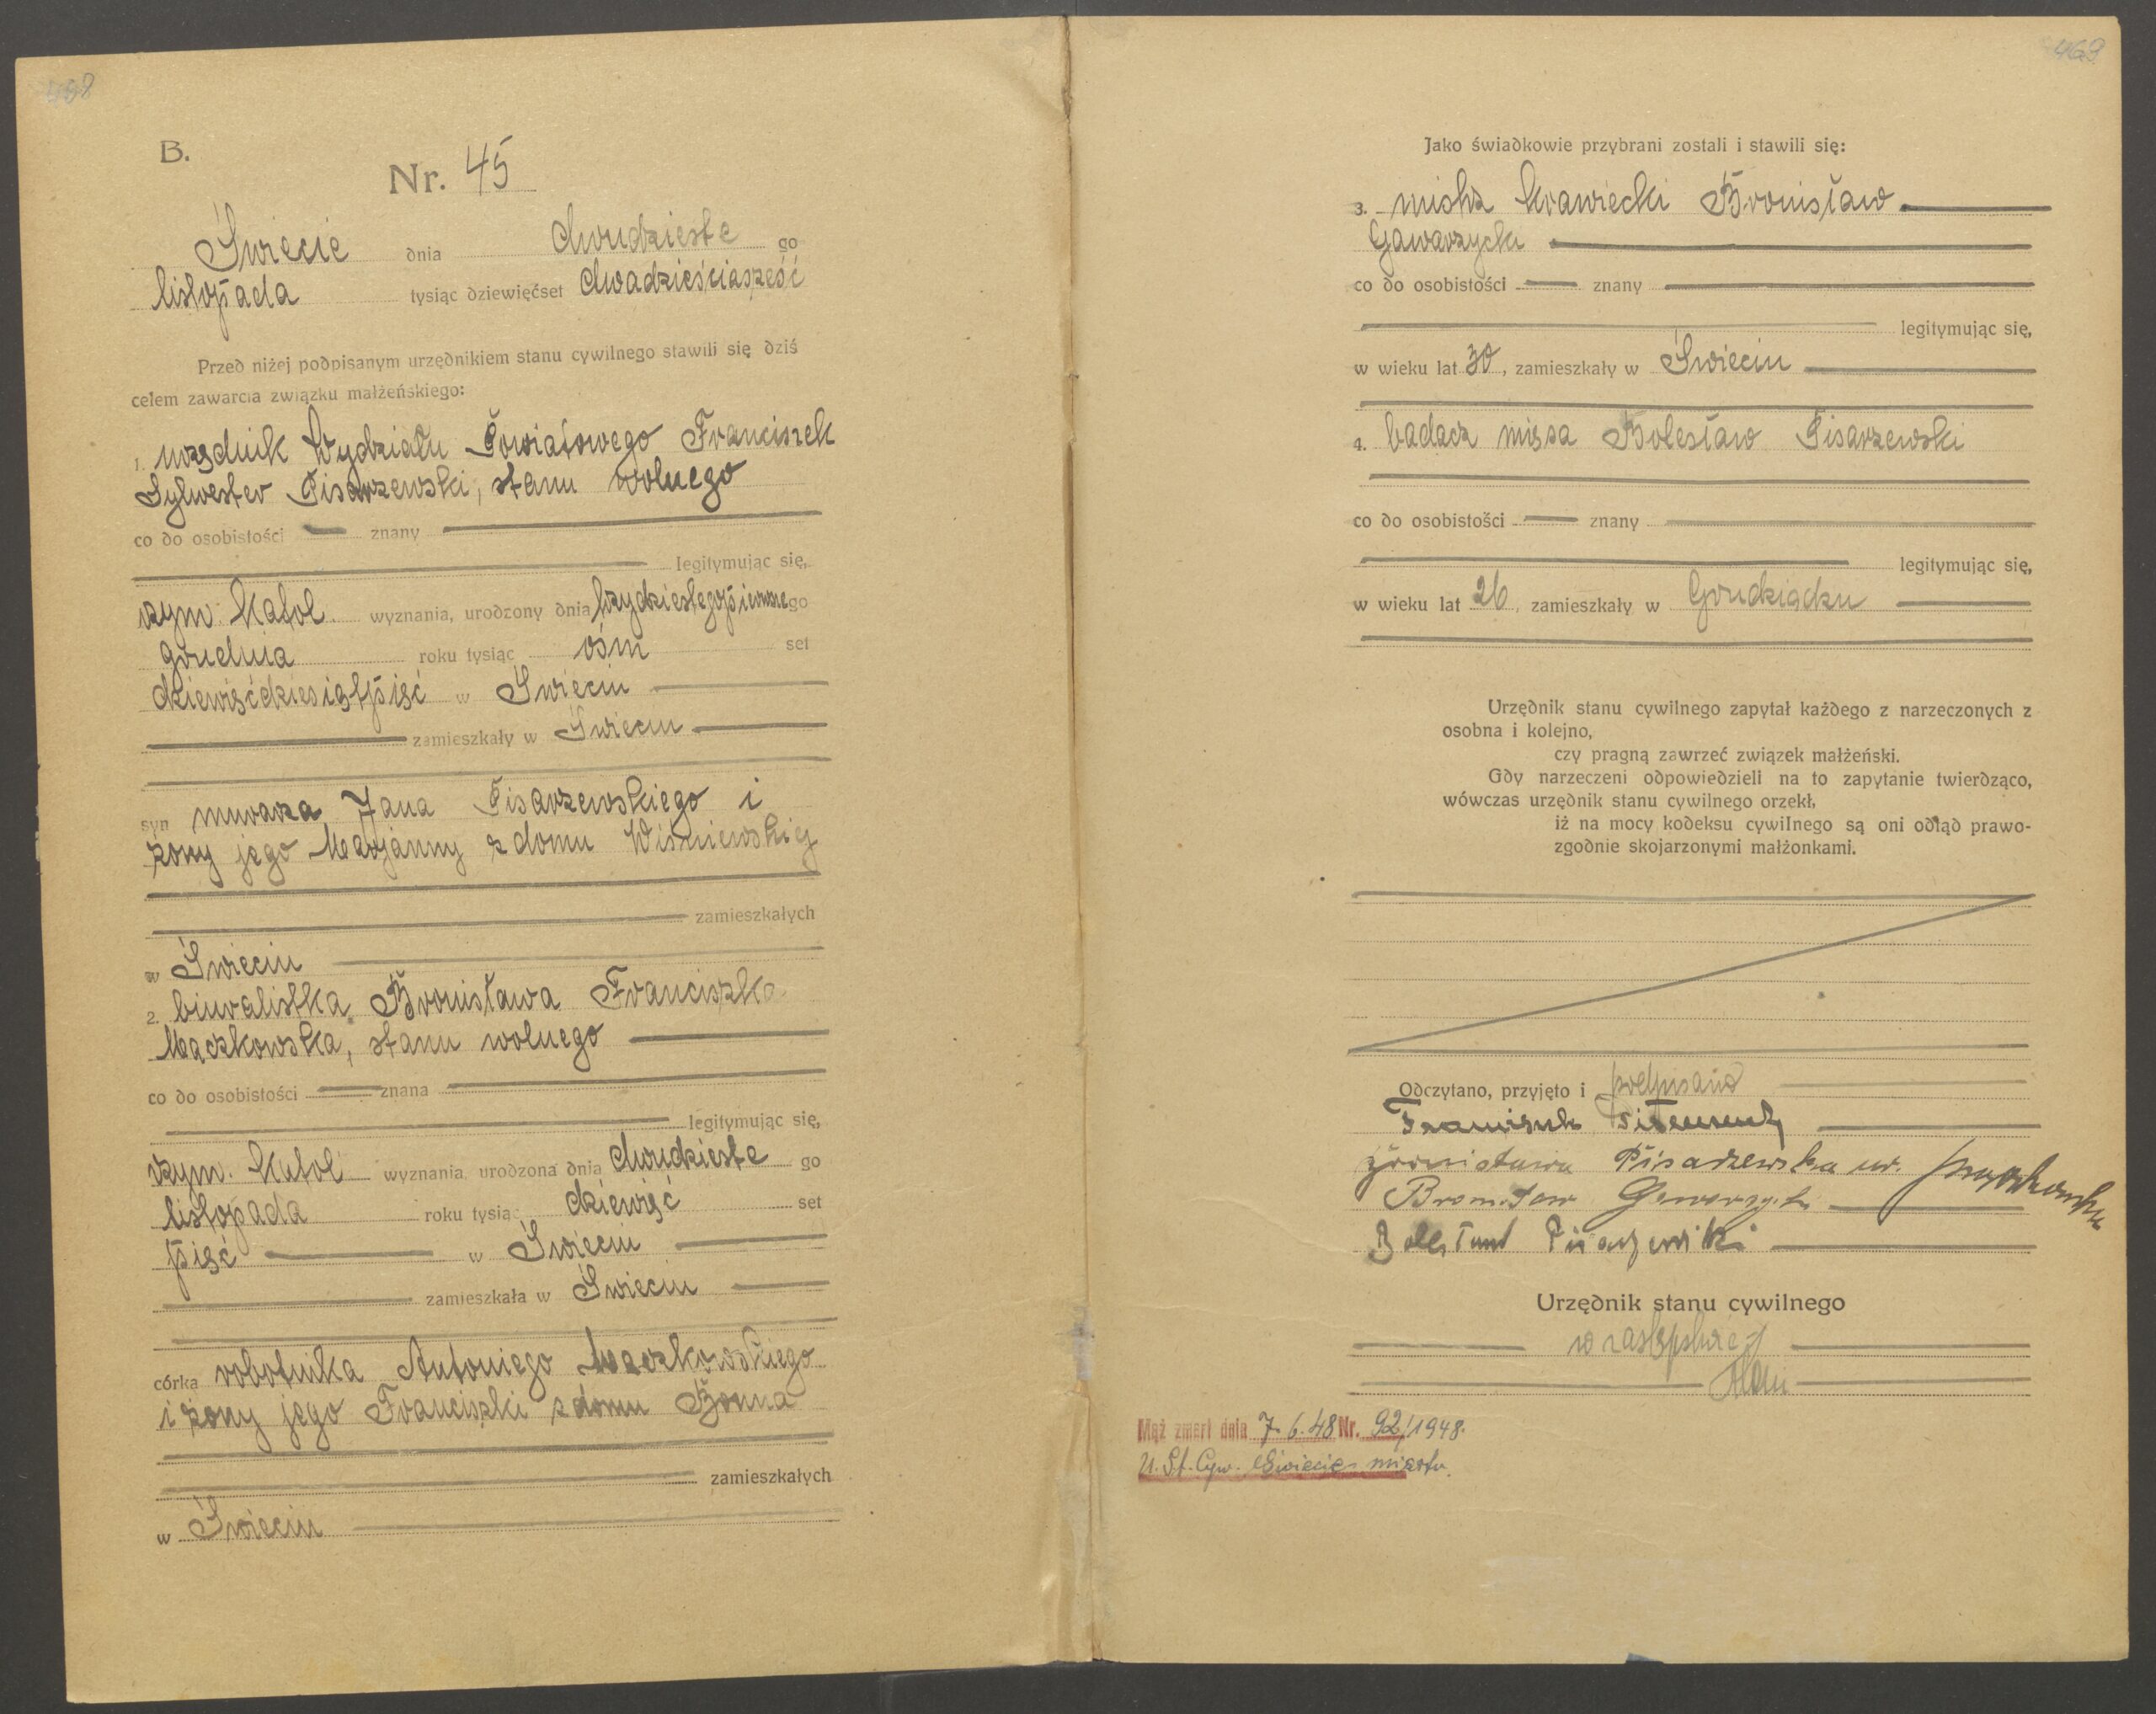 B.
Nr. 45
Świecie dnia dwudzieste go
listopada tysiąc dziewięćset dwadzieściasześć
Przed niżej podpisanym urzędnikiem stanu cywilnego stawili się dziś
celem zawarcia związku małżeńskiego:
1. urzędnik Wydziału Powiatowego Franciszek
Sylwester Pisarzewski, stanu wolnego
co do osobistości znany
legitymując się,
rzym. katol. wyznania, urodzony dnia trzydziestegopierwszego
grudnia roku tysiąc ośm set
dziewięćdziesiątpięć w Świeciu
zamieszkały w Świeciu
syn murarza Jana Pisarzewskiego i
żony jego Marjanny z domu Wiśniewskiej
zamieszkałych
w Świeciu
2. biuralistka Bronisława Franciszka
Mączkowska, stanu wolnego
co do osobistości znana
legitymując się,
rzym. katol wyznania, urodzona dnia dwudzieste go
listopada roku tysiąc dziewięć set
pięć w Świeciu
zamieszkała w Świeciu
córka robotnika Antoniego Mączkowskiego
i żony jego Franciszki z domu
zamieszkałych
w Świeciu
469
Jako świadkowie przybrani zostali i stawili się:
3. mistrz krawiecki Bronisław
Gawarzycki
co do osobistości znany
legitymując się,
w wieku lat 30, zamieszkały w Świeciu
4. badacz mięsa Bolesław Pisarzewski
co do osobistości znany
legitymując się,
w wieku lat 26, zamieszkały w Grudziądzu
Urzędnik stanu cywilnego zapytał każdego z narzeczonych z
osobna i kolejno,
czy pragną zawrzeć związek małżeński.
Gdy narzeczeni odpowiedzieli na to zapytanie twierdząco,
wówczas urzędnik stanu cywilnego orzekł,
iż na mocy kodeksu cywilnego są oni odtąd prawo-
zgodnie skojarzonymi małżonkami.
Odczytano, przyjęto i podpisano
Franciszek
Bronisława Pisarzewska ur. Mączkowska
Bronisław
Bolesław Pisarzewski
Urzędnik stanu cywilnego
w zastępstwie
Mąż zmarł dnia 7.6.48 Nr. 92/1948.
U. St. Cyw. Świecie miasto.